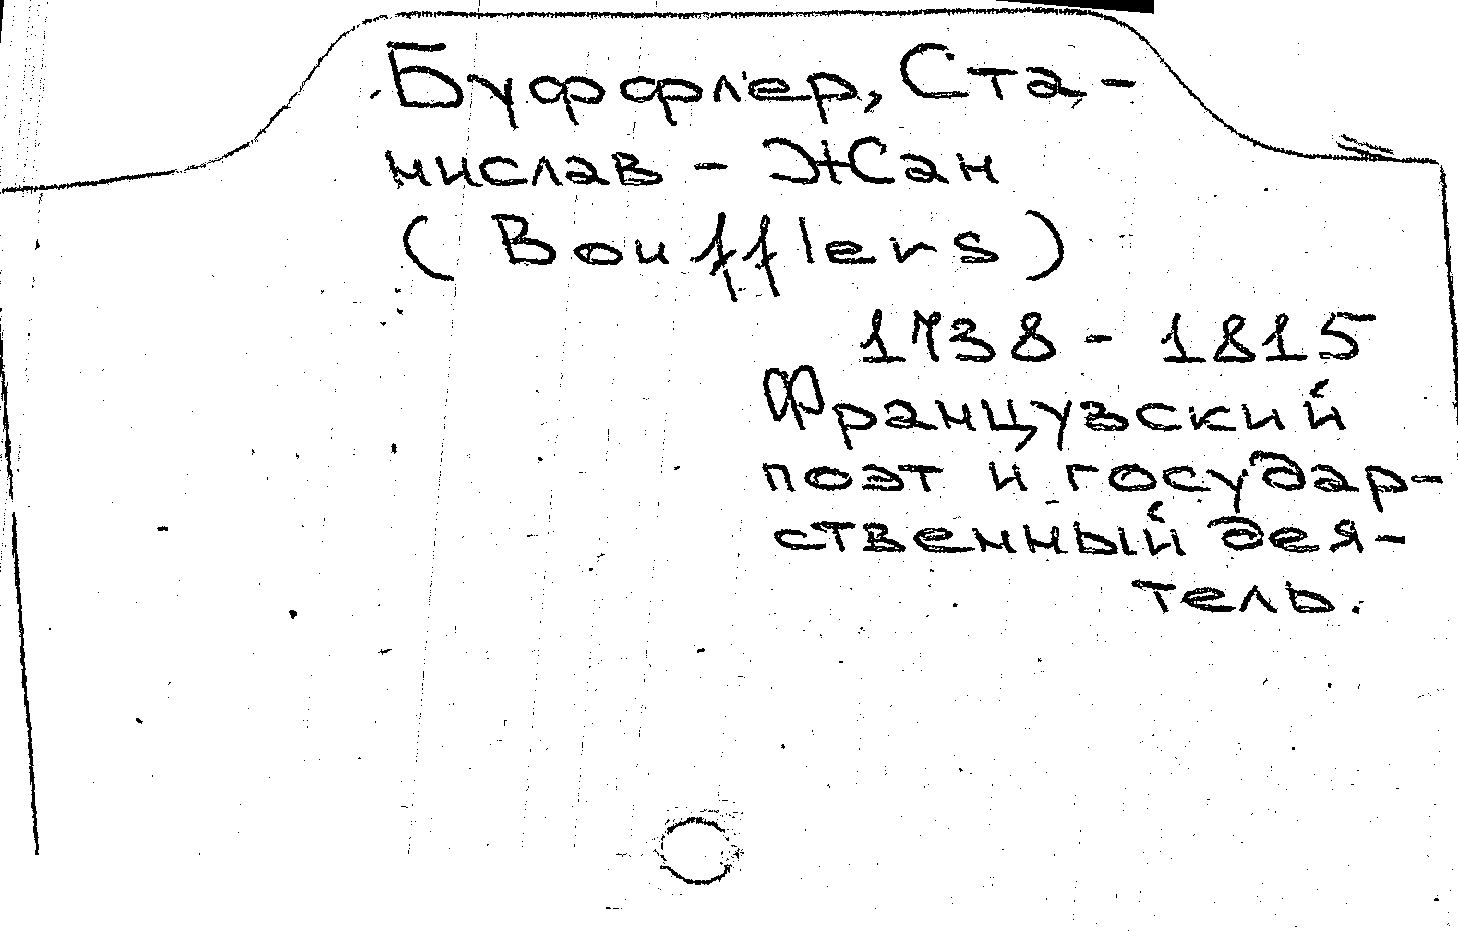 Буффлер, Ста-
нислав - Жан
(Boufflers)
1738 - 1815
Французский
поэт и государ-
ственный дея-
тель.